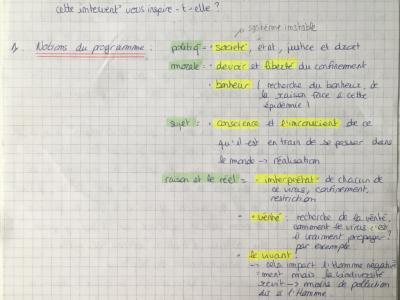 cette intervent° vous inspire-t-elle ?
système instable
1. Notions du programme : politiq = • société, état, justice et droit
morale = • devoir et liberté du confinement
• bonheur (recherche du bonheur, de
la raison face à cette
épidémie !
sujet = • conscience et l'inconscient de ce
qu'il est en train de se passer dans
le monde → réalisation
raison et le réel = • interprétat° de chacun de
ce virus, confinement,
restriction
• vérité : recherche de la vérité,
comment le virus s'est
il vraiment propager ?
par exemple
• le vivant :
→ cela impact l'Homme negative
ment mais la biodiversité
revit → moins de pollution
dû à l'Homme